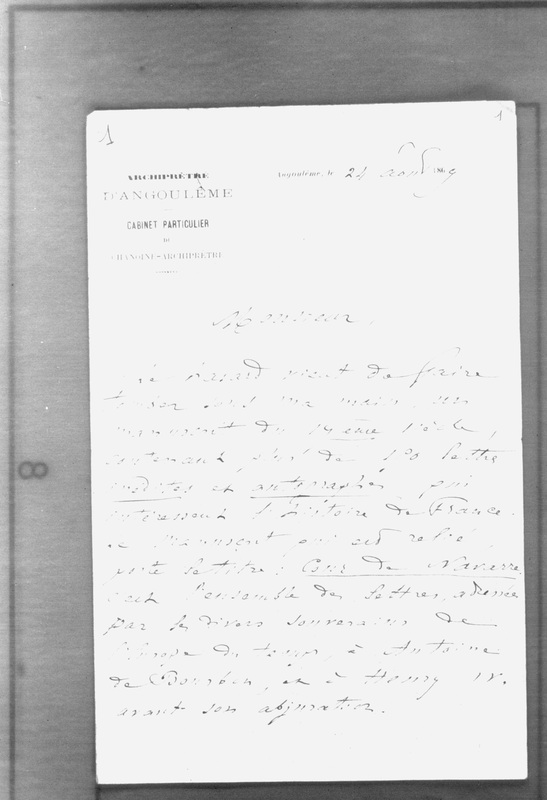 1
1
ARCHIPRÊTRÉ
D'ANGOULÊME
CABINET PARTICULIER
DU
CHANOINE-ARCHIPRÊTRE
Angoulême, le 24 août 1869
Monsieur,
Le hasard vient de faire
tomber sous ma main, un
manuscrit du 16ème siècle,
contenant plus de 120 lettres
inédites et autographes qui
intéressent l'histoire de France.
Ce manuscrit qui est relié,
porte le titre: Cour de Navarre.
C'est l'ensemble des lettres, adressées
par les divers souverains de
l'Europe du temps, à Antoine
de Bourbon, et à Henry IV.
avant son abjuration.
8